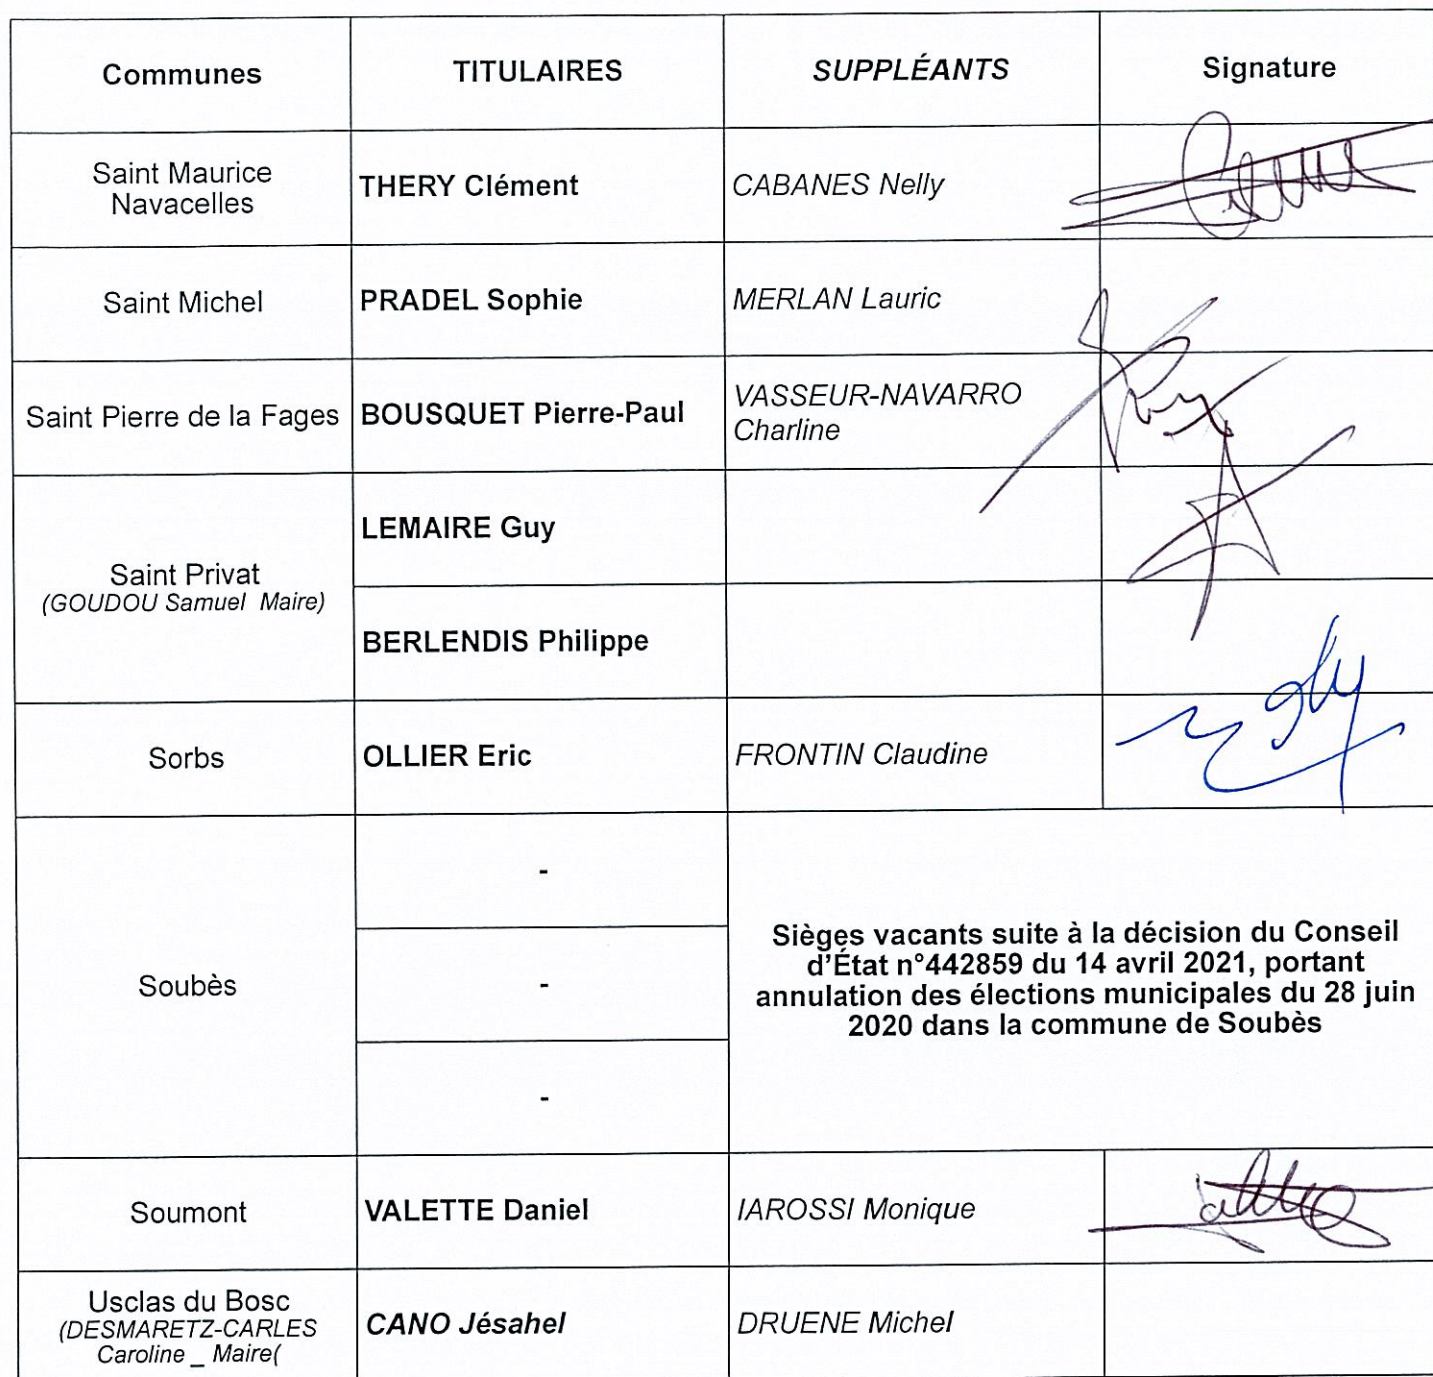 Communes TITULAIRES SUPPLÉANTS Signature
Saint Maurice
Navacelles
THERY Clément
CABANES Nelly
Saint Michel
PRADEL Sophie
MERLAN Lauric
Saint Pierre de la Fages
BOUSQUET Pierre-Paul
VASSEUR-NAVARRO
Charline
Saint Privat
(GOUDOU Samuel Maire)
LEMAIRE Guy
BERLENDIS Philippe
Sorbs
OLLIER Eric
FRONTIN Claudine
Soubès
-
-
-
Sièges vacants suite à la décision du Conseil
d'État n°442859 du 14 avril 2021, portant
annulation des élections municipales du 28 juin
2020 dans la commune de Soubès
Soumont
VALETTE Daniel
IAROSSI Monique
Usclas du Bosc
(DESMARETZ-CARLES
Caroline _ Maire(
CANO Jésahel
DRUENE Michel